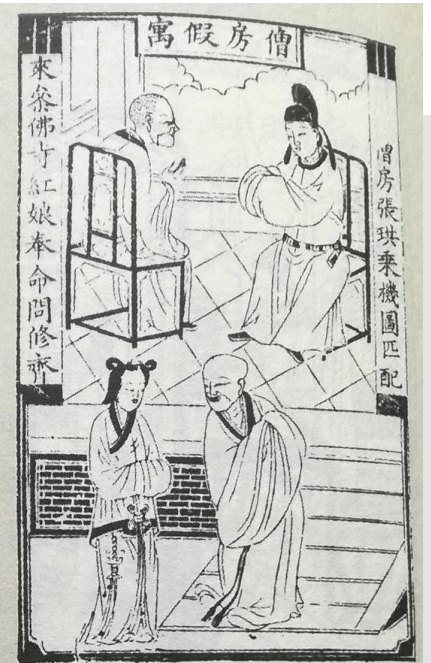 僧房假寓
借房張珙乘機圖匹配
來參佛寺紅娘奉命問修齋